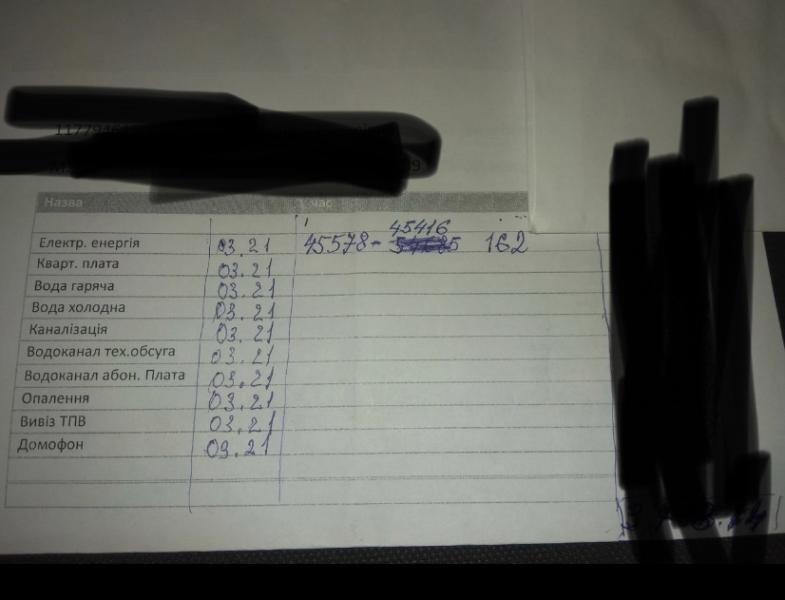 Назва час
45416
Електр. енергія 03.21 45578- 162
Кварт. плата 03.21
Вода гаряча 03.21
Вода холодна 03.21
Каналізація 03.21
Водоканал тех.обсуга 03.21
Водоканал абон. Плата 03.21
Опалення 03.21
Вивіз ТПВ 03.21
Домофон 03.21